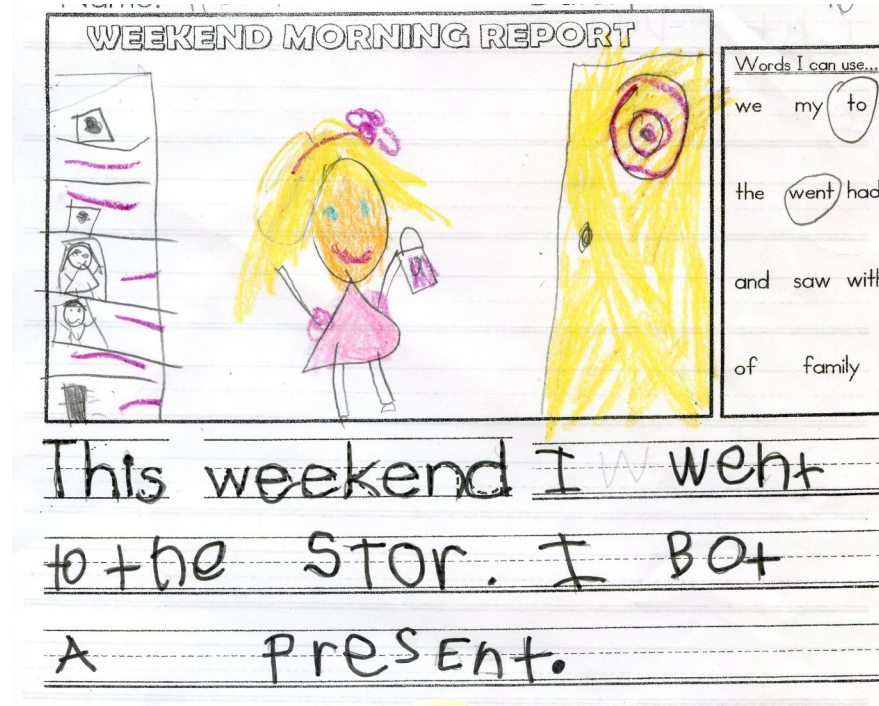 WEEKEND MORNING REPORT
Words I can use...
we my to
the went had
and saw with
of family
This weekend I w went
to the STOR. I BOt
A PresEnt.